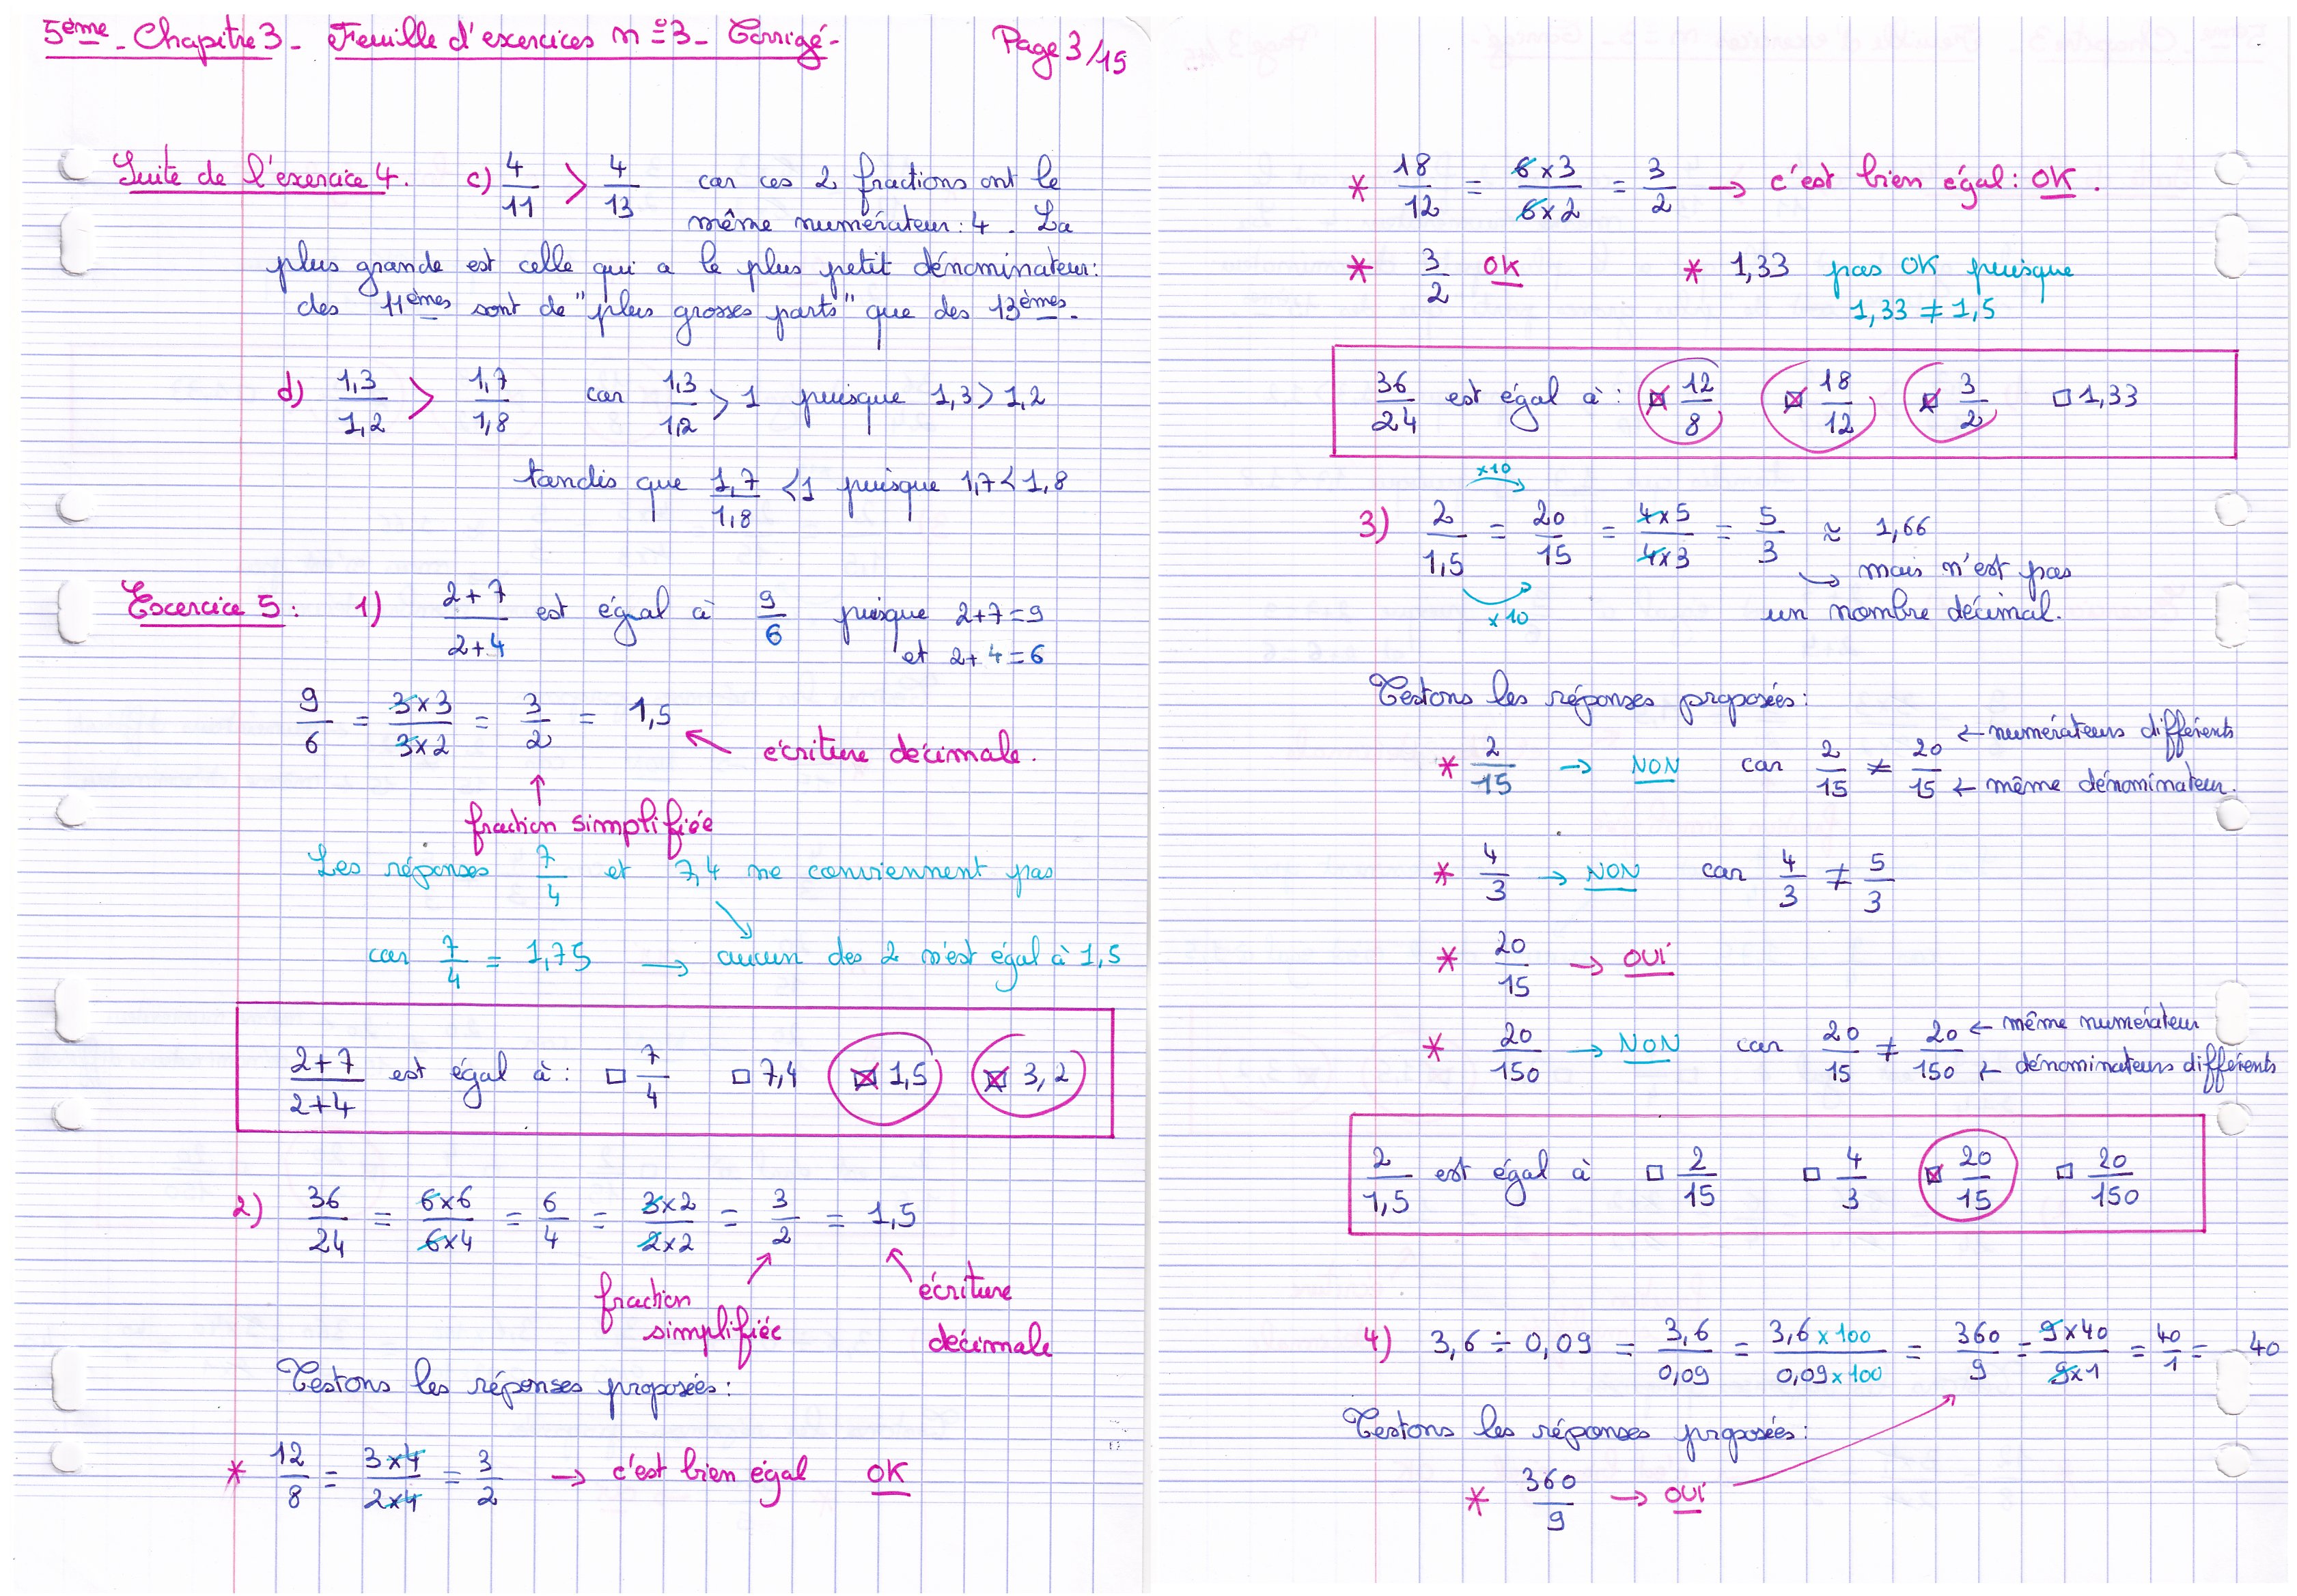 5ème - Chapitre 3 - Feuille d'exercices n°3 - Corrigé - Page 3/15
Suite de l'exercice 4. c) 4/11 > 4/13 car ces 2 fractions ont le
même numérateur : 4. La
plus grande est celle qui a le plus petit dénominateur :
des 11èmes sont de "plus grosses parts" que des 13èmes.
d) 1,3/1,2 > 1,7/1,8 car 1,3/1,2 > 1 puisque 1,3 > 1,2
tandis que 1,7/1,8 < 1 puisque 1,7 < 1,8
Exercice 5 : 1) (2+7)/(2+4) est égal à 9/6 puisque 2+7=9
et 2+4=6
9/6 = (3x3)/(3x2) = 3/2 = 1,5
écriture décimale.
fraction simplifiée
Les réponses 7/4 et 7,4 ne conviennent pas
car 7/4 = 1,75 → aucun des 2 n'est égal à 1,5
(2+7)/(2+4) est égal à : □ 7/4 □ 7,4 ☒ 1,5 ☒ 3,2
2) 36/24 = (6x6)/(6x4) = 6/4 = (3x2)/(2x2) = 3/2 = 1,5
fraction simplifiée
écriture décimale
Testons les réponses proposées :
* 12/8 = (3x4)/(2x4) = 3/2 → c'est bien égal OK
* 18/12 = (6x3)/(6x2) = 3/2 → c'est bien égal : OK.
* 3/2 OK * 1,33 pas OK puisque
1,33 ≠ 1,5
36/24 est égal à : ☒ 12/8 ☒ 18/12 ☒ 3/2 □ 1,33
x10
3) 2/1,5 = 20/15 = (4x5)/(4x3) = 5/3 ≈ 1,66
x10
→ mais n'est pas
un nombre décimal.
Testons les réponses proposées :
* 2/15 → NON car 2/15 ≠ 20/15 ← numérateurs différents
← même dénominateur.
* 4/3 → NON car 4/3 ≠ 5/3
* 20/15 → OUI
* 20/150 → NON car 20/15 ≠ 20/150 ← même numérateur
← dénominateurs différents
2/1,5 est égal à □ 2/15 □ 4/3 ☒ 20/15 □ 20/150
4) 3,6 ÷ 0,09 = 3,6/0,09 = (3,6x100)/(0,09x100) = 360/9 = (9x40)/(9x1) = 40/1 = 40
Testons les réponses proposées :
* 360/9 → OUI